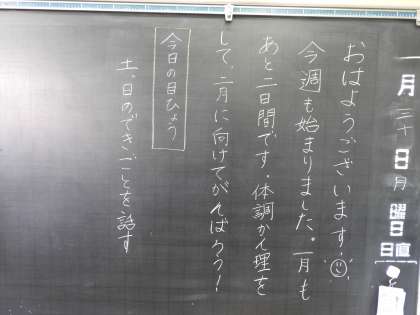 一月三十日月曜日
日直
おはようございます!
今週も始まりました。一月も
あと二日間です。体調かん理を
して、二月に向けてがんばろう!
今日の目ひょう
土、日のできごとを話す